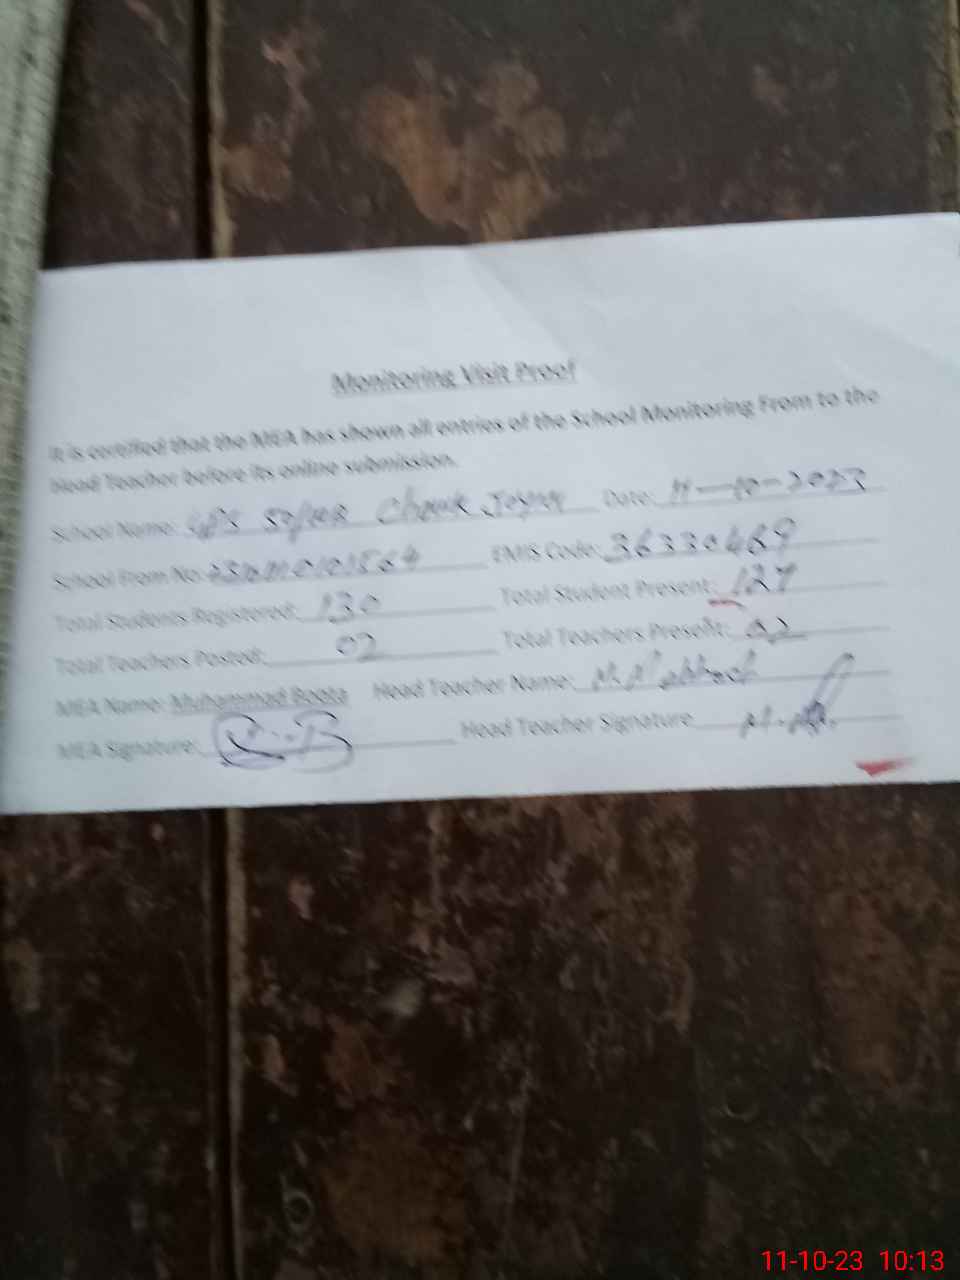 Monitoring Visit Proof
It is certified that the MEA has shown all entries of the School Monitoring From to the
Head Teacher before its online submission.
School Name: GPS Chowk Date: 11-10-2023
School From No: EMIS Code: 36330469
Total Students Registered: 130 Total Student Present: 127
Total Teachers Posted: 02 Total Teachers Present: 02
MEA Name: Muhammad Boota Head Teacher Name:
MEA Signature: Head Teacher Signature
11-10-23 10:13